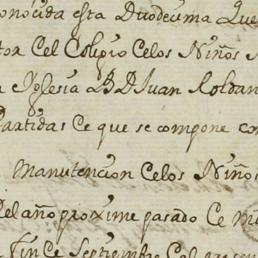 onocida esta Duodecima Que
tor Cel Colegio Celos Niños
Iglesia B.D. Juan Roldan
Partidas Ce que se compone con
Manutencion Celos Niños
Del año proxime pasado Ce mi
fin Ce Septiembre Cel